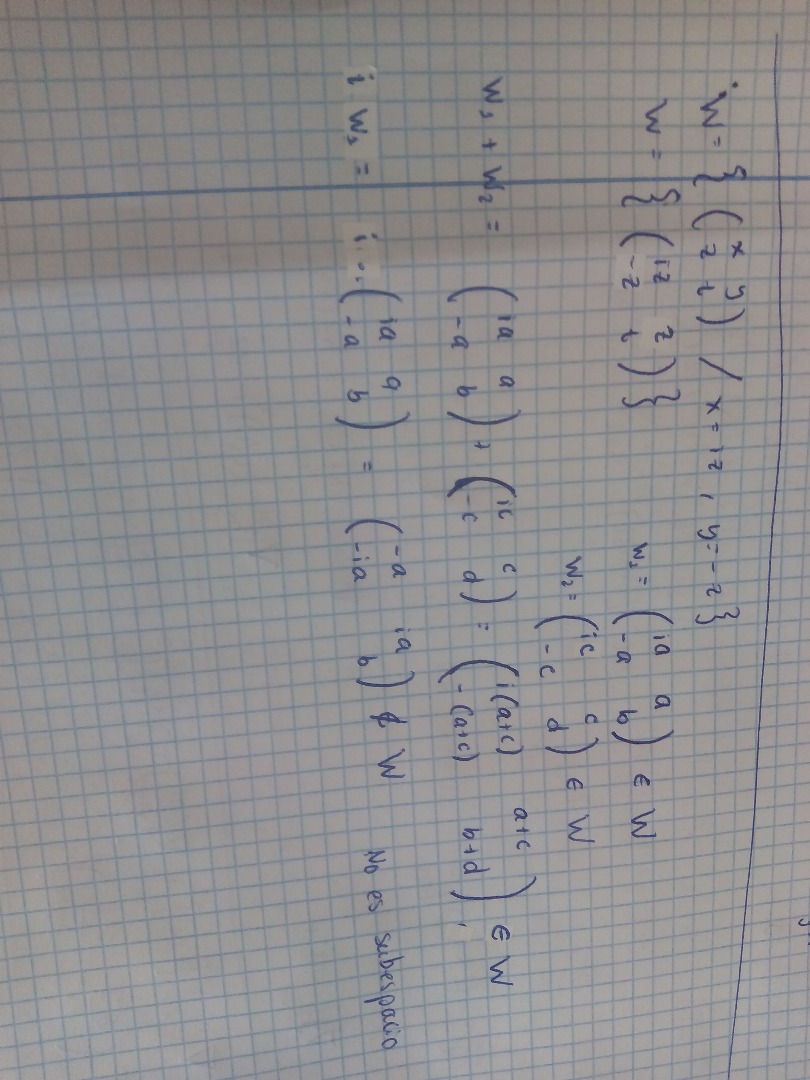 W = { ( x y
z t ) / x = iz , y = -z }
W = { ( iz z
-z t ) } w₁ = ( ia a
-a b ) ∈ W
w₂ = ( ic c
-c d ) ∈ W
w₁ + w₂ = ( ia a
-a b ) + ( ic c
-c d ) = ( i(a+c) a+c
-(a+c) b+d ) ∈ W
i w₁ = i · ( ia a
-a b ) = ( -a ia
-ia b ) ∉ W No es subespacio